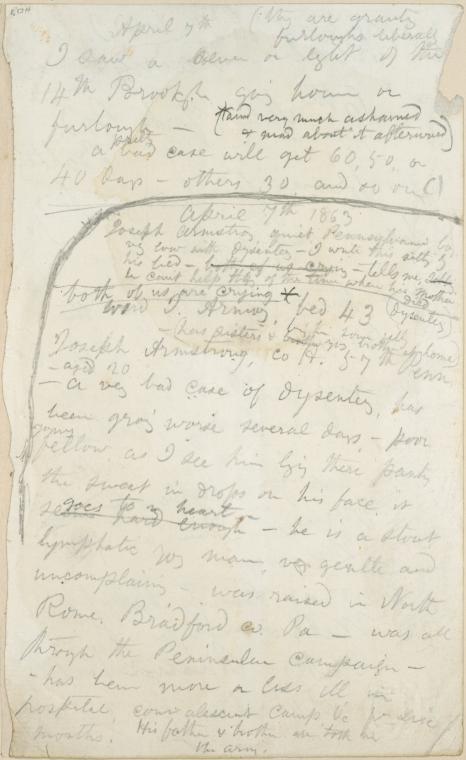 April 7th (They are granting
furloughs liberally
I saw a dozen or eight of the
14th Brookl. going home on
furloughs — (*and very much ashamed
& mad about it afterward)
a pretty bad case will get 60, 50, or
40 days — others 30 and so on ()
April 7th 1863
Joseph Armstrong, quiet Pennsylvania boy
very low with dysentery — I write this sitting by
his bed — both of us crying — tells me,
he can't help of the time when his mother died
both of us are crying * dysentery)
ward I. Armory, bed 43
(has sisters & brother at home)
Joseph Armstrong, co A. 57th Penn
— aged 20
— a very bad case of dysentery, has
been growing worse several days — poor
young
fellow as I see him lying there panting
the sweat in drops on his face, it
goes to my heart
hard enough — he is a stout
lymphatic young man, very gentle and
uncomplaining — was raised in North
Rome. Bradford co. Pa — was all
through the Peninsular Campaign —
— has been more or less ill in
hospital, convalescent camps &c for
months. His father & brother are both in
the army.